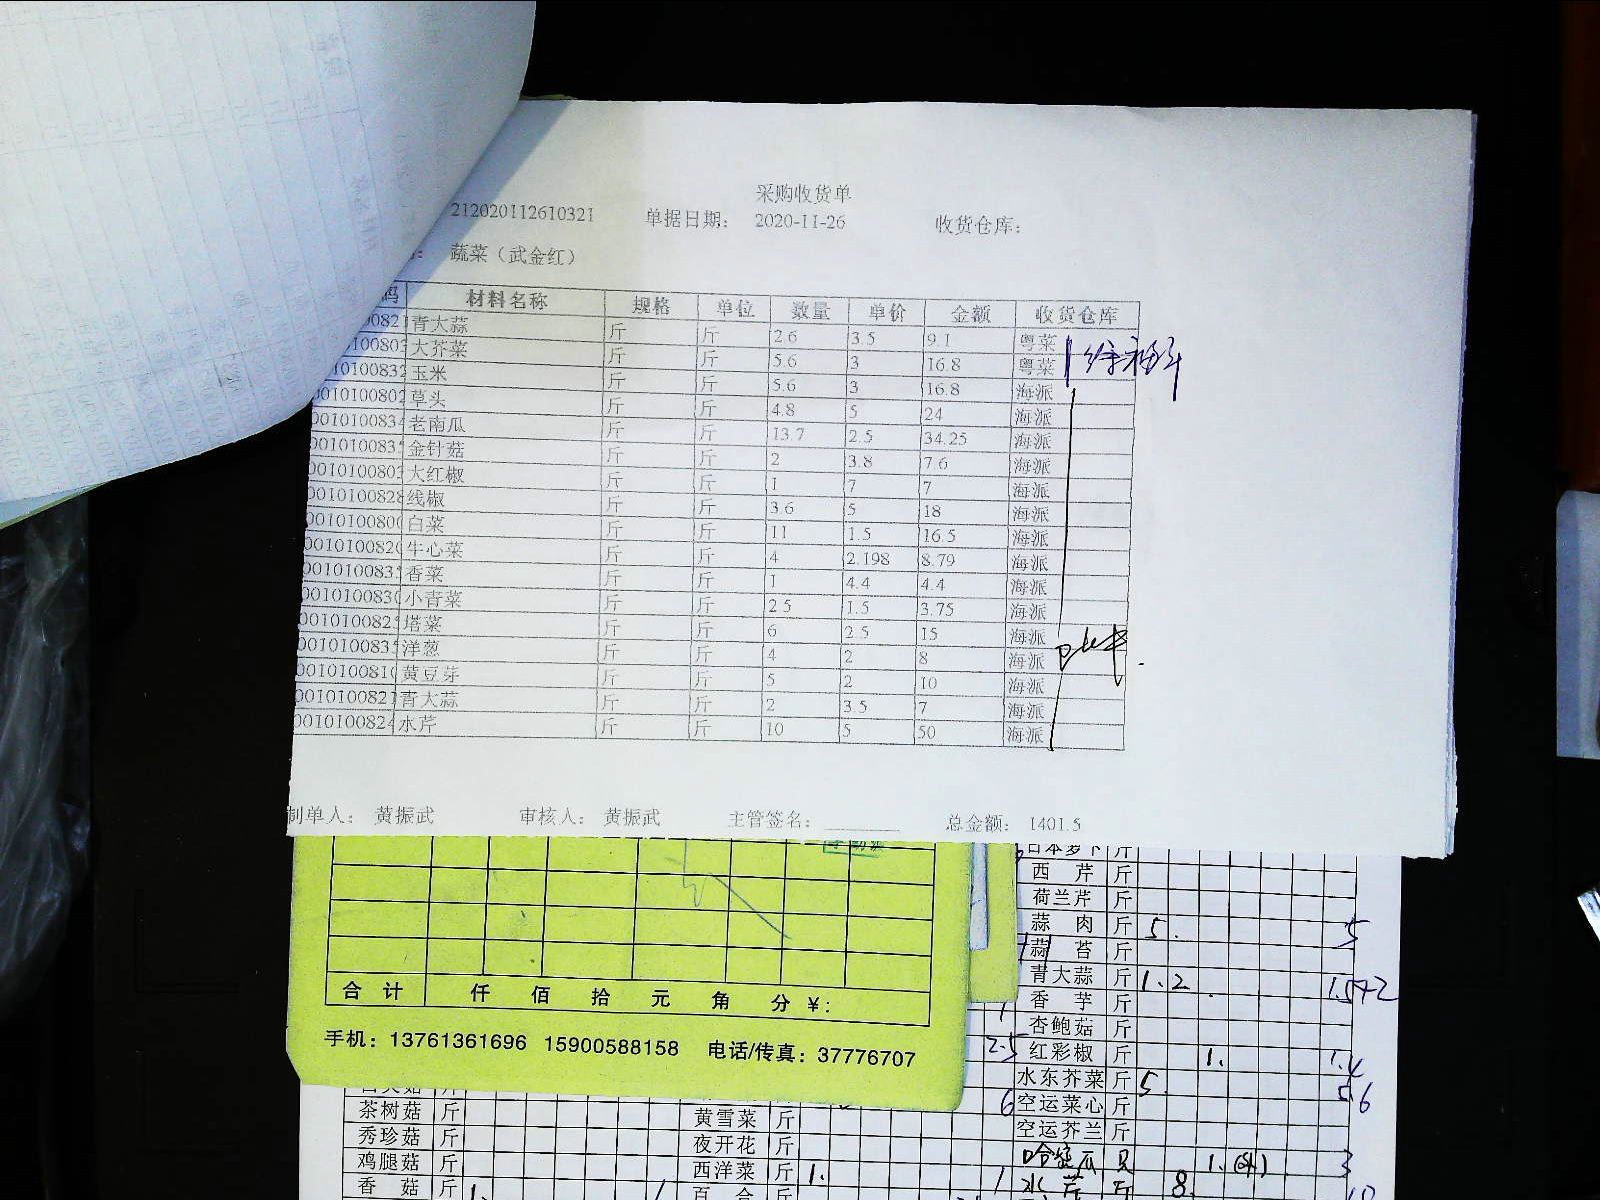 采购收货单
212020112610321 单据日期： 2020-11-26 收货仓库：
蔬菜（武金红）
码 材料名称 规格 单位 数量 单价 金额 收货仓库
青大蒜 斤 斤 2.6 3.5 9.1 粤菜
大芥菜 斤 斤 5.6 3 16.8 粤菜
玉米 斤 斤 5.6 3 16.8 海派
草头 斤 斤 4.8 5 24 海派
老南瓜 斤 斤 13.7 2.5 34.25 海派
金针菇 斤 斤 2 3.8 7.6 海派
大红椒 斤 斤 1 7 7 海派
线椒 斤 斤 3.6 5 18 海派
白菜 斤 斤 11 1.5 16.5 海派
牛心菜 斤 斤 4 2.198 8.79 海派
香菜 斤 斤 1 4.4 4.4 海派
小青菜 斤 斤 2.5 1.5 3.75 海派
塔菜 斤 斤 6 2.5 15 海派
洋葱 斤 斤 4 2 8 海派
黄豆芽 斤 斤 5 2 10 海派
青大蒜 斤 斤 2 3.5 7 海派
水芹 斤 斤 10 5 50 海派
制单人： 黄振武 审核人： 黄振武 主管签名： 总金额： 1401.5
合计 仟 佰 拾 元 角 分 ¥：
手机：13761361696 15900588158 电话/传真：37776707
日本萝卜 斤
西芹 斤
荷兰芹 斤
蒜肉 斤 5. 5
蒜苔 斤
青大蒜 斤 1.2
香芋 斤
杏鲍菇 斤
2.5 红彩椒 斤 1. 1.4
水东芥菜 斤 5. 5.6
6 空运菜心 斤
空运芥兰 斤
茶树菇 斤
秀珍菇 斤
鸡腿菇 斤
香菇 斤 1.
黄雪菜 斤
夜开花 斤
西洋菜 斤 1. 1
百合 斤
水芹 斤 8.